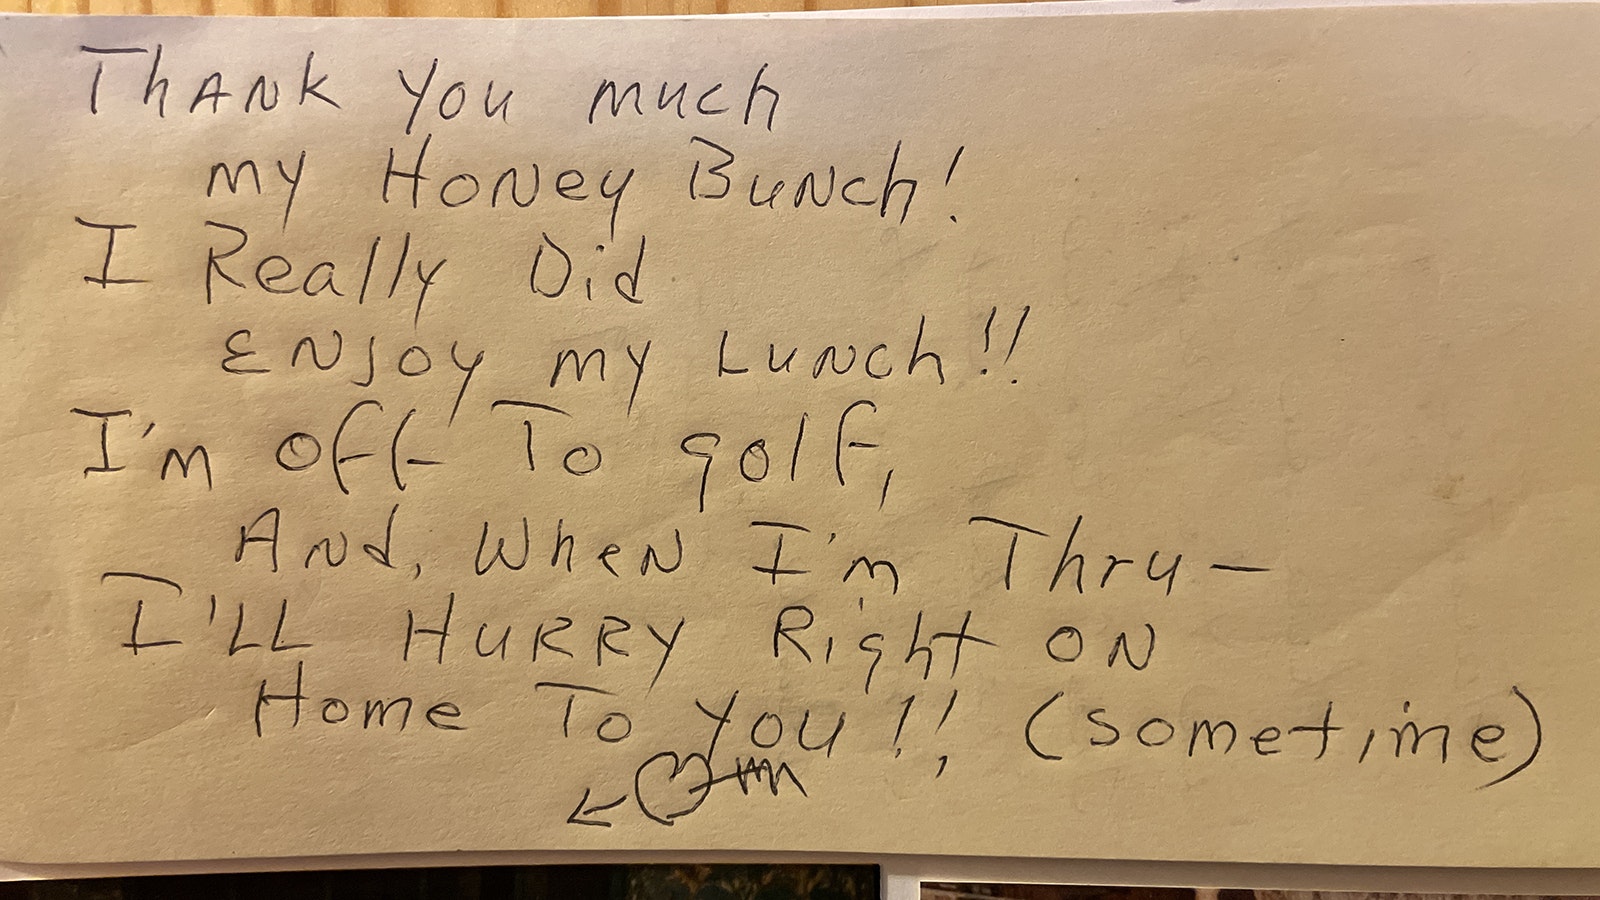 Thank you much
my Honey Bunch!
I Really Did
Enjoy my Lunch!!
I'm off To golf,
And, When I'm Thru-
I'LL HURRY Right ON
Home To you!! (sometime)